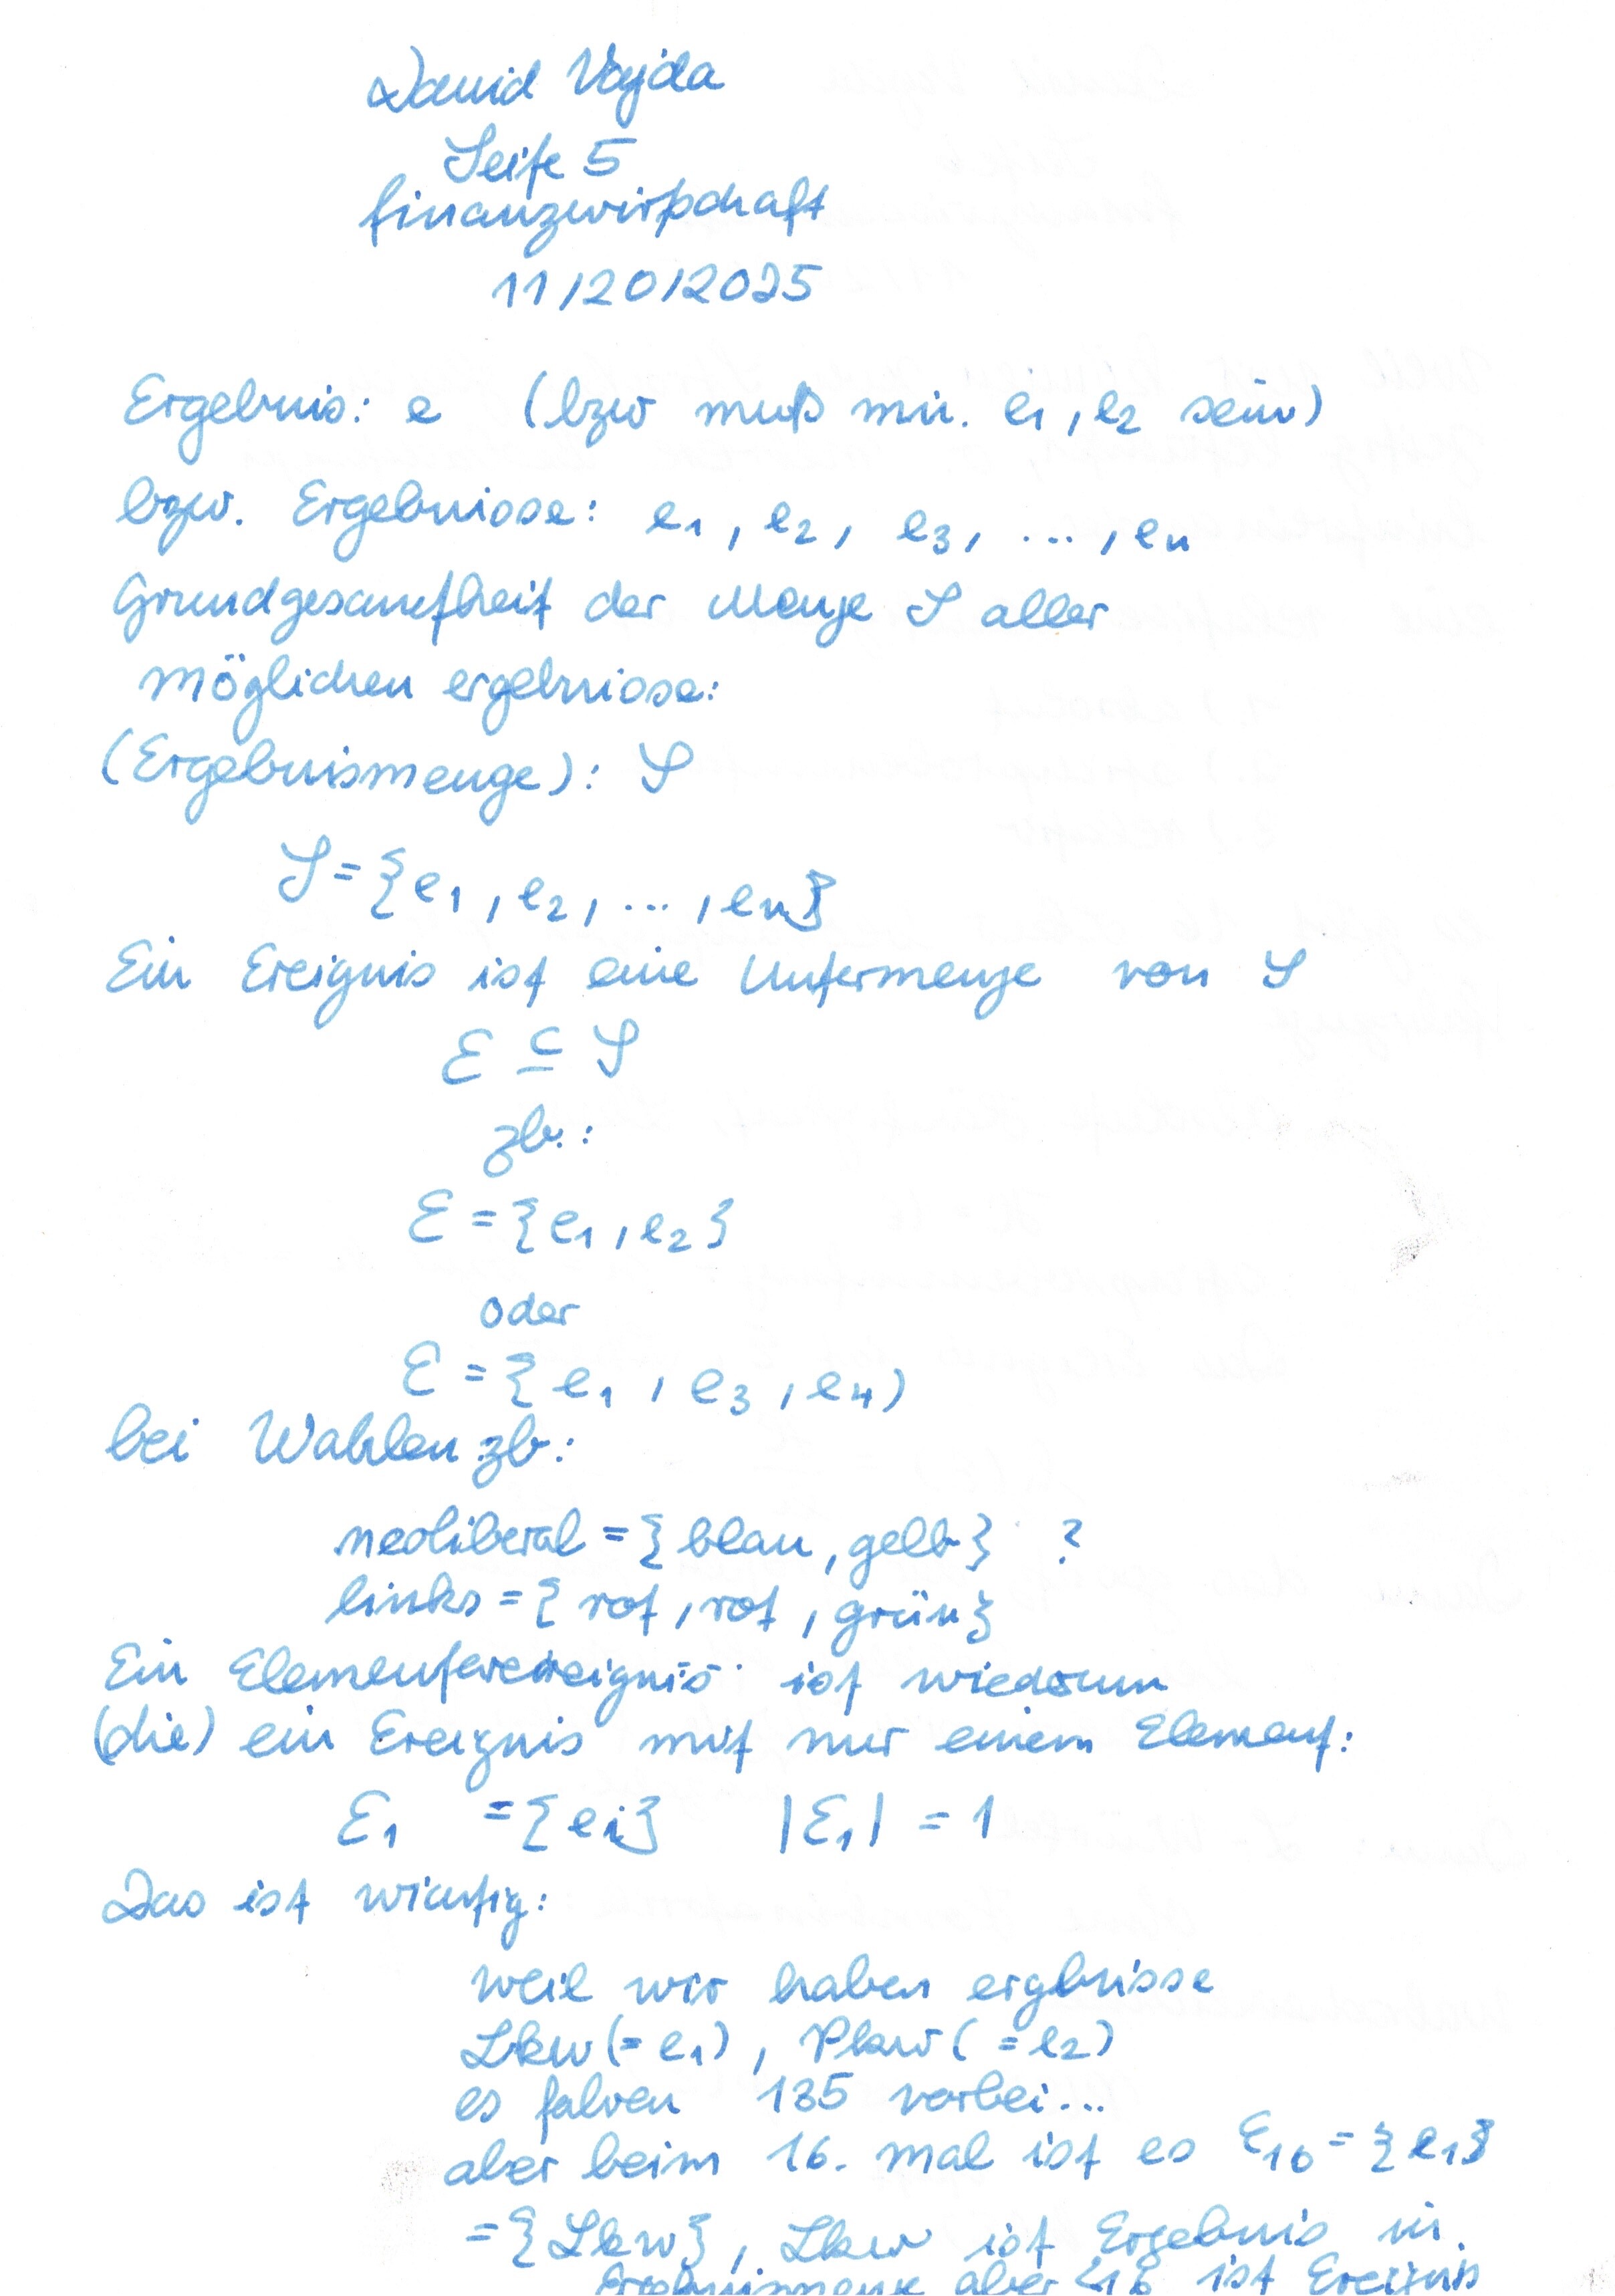 David Vajda
Seite 5
finanzwirtschaft
11/20/2025
Ergebnis: e (bzw muß min. e1, e2 sein)
bzw. Ergebniose: e1, e2, e3, ..., en
Grundgesamtheit der Menge S aller
möglichen ergebniose:
(Ergebnismenge): S
S = {e1, e2, ..., en}
Ein Ereignis ist eine Untermenge von S
E ⊆ S
zb.:
E = {e1, e2}
oder
E = {e1, e3, e4)
bei Wahlen zb:
neoliberal = {blau, gelb} ?
links = {rot, rot, grün}
Ein ist wiederum
(die) ein Ereignis mit nur einem Element:
E1 = {ei} |E1| = 1
Das ist wichtig:
weil wir haben ergbnisse
Lkw (= e1), Pkw ( = e2)
es fahren 135 vorbei...
aber beim 16. mal ist es E16 = {e1}
= {Lkw}, Lkw ist Ergebnis in.
Ergebnismenge aber E16 ist Ereignis